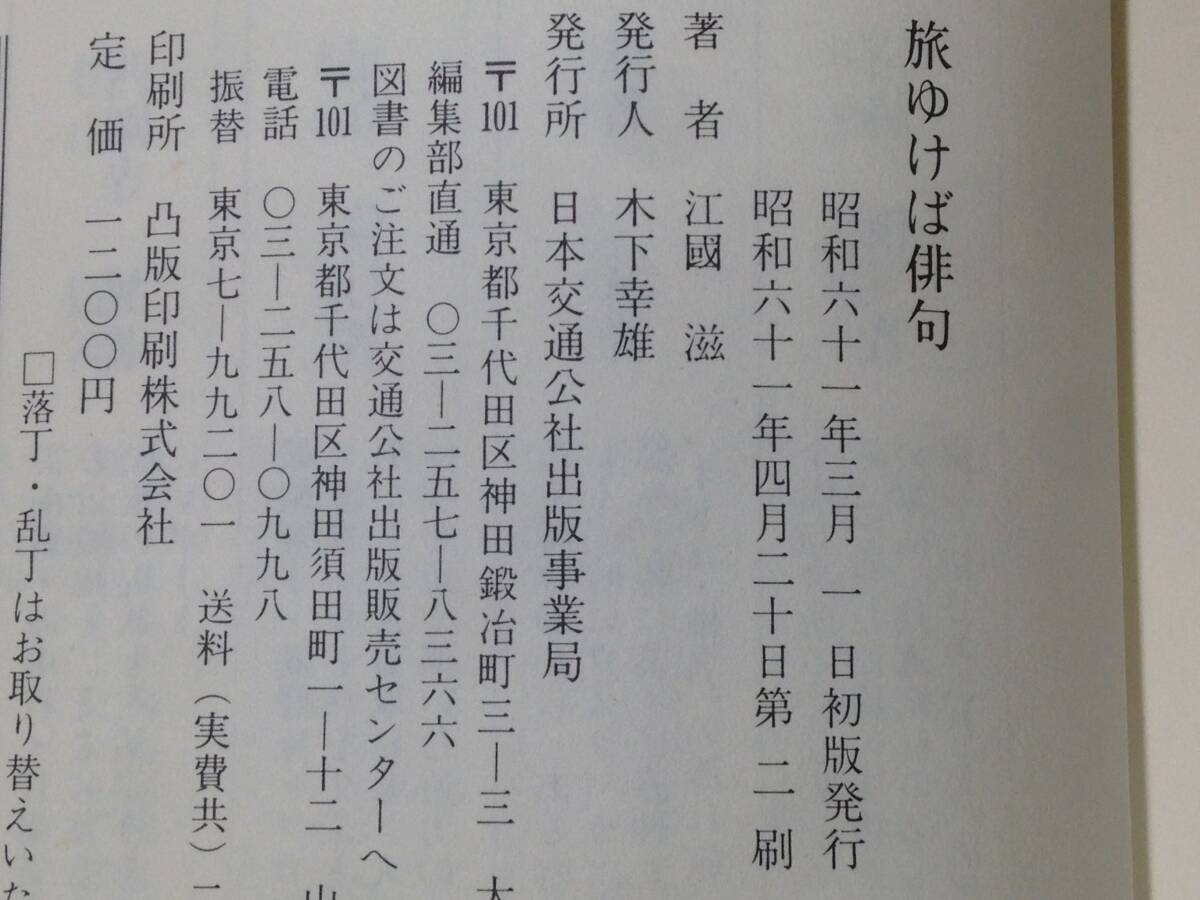 旅ゆけば俳句
昭和六十一年三月 一 日初版発行
昭和六十一年四月二十日第 二 刷
著 者 江國 滋
発行人 木下幸雄
発行所 日本交通公社出版事業局
〒101 東京都千代田区神田鍛冶町三―三 大
編集部直通 〇三―二五七―八三六六
図書のご注文は交通公社出版販売センターへ
〒101 東京都千代田区神田須田町一―十二 山
電話 〇三―二五八―〇九九八
振替 東京七―九九二〇一 送料(実費共)
印刷所 凸版印刷株式会社
定 価 一二〇〇円
□落丁・乱丁はお取り替えいた